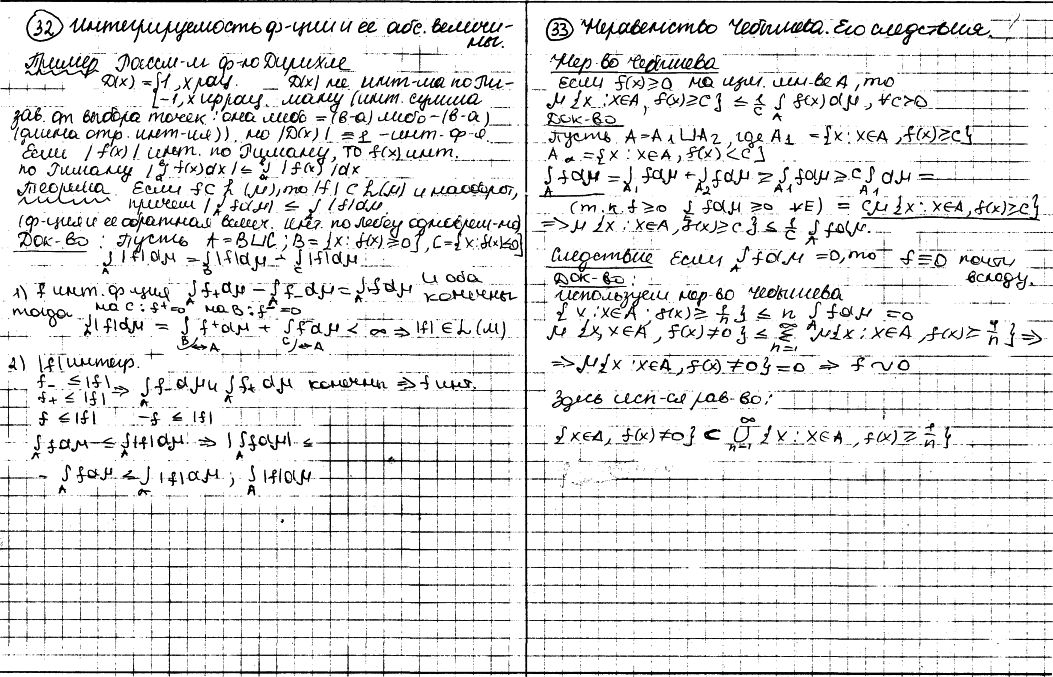 32 Интегрируемость ф-ции и ее абс. величи-
ны.
Пример Рассм-м ф-ю Дирихле
D(x) = {1, x рац. D(x) не инт-ма по Ри-
{-1, x иррац. ману (инт. сумма
зав. от выбора точек: она либо =(b-a) либо -(b-a)
(длина отр. инт-ия)), но |D(x)| ≡ 1 - инт. ф-я
Если |f(x)| инт. по Риману, то f(x) инт.
по Риману |∫f(x)dx| ≤ ∫|f(x)|dx
Теорема Если f ⊂ L(μ), то |f| ⊂ L(μ) и наоборот,
причем |∫_A f dμ| ≤ ∫_A |f| dμ
(ф-ция и ее обратная велич. инт. по Лебегу одноврем-но)
Док-во: Пусть A = B⊔C; B = {x: f(x) ≥ 0}, C = {x: f(x) ≤ 0}
∫_A |f| dμ = ∫_B |f| dμ + ∫_C |f| dμ
1) f инт. ф-ция ∫_A f₊dμ - ∫_A f₋dμ = ∫_A f dμ и оба
тогда на C: f⁺=0 на B: f⁻=0 конечны
∫_A |f| dμ = ∫_B f⁺dμ + ∫_C f⁻dμ < ∞ ⇒ |f| ∈ L(μ)
B↔A C↔A
2) |f| интегр.
f₋ ≤ |f| ⇒ ∫_A f₋dμ и ∫_A f₊dμ конечны ⇒ f инт.
f₊ ≤ |f|
f ≤ |f| -f ≤ |f|
∫_A f dμ ≤ ∫_A |f| dμ ⇒ |∫_A f dμ| ≤
- ∫_A f dμ ≤ ∫_A |f| dμ ; ∫_A |f| dμ
33 Неравенство Чебышева. Его следствия.
Нер-во Чебышева
Если f(x) ≥ 0 на изм. мн-ве A, то
μ{x: x∈A, f(x) ≥ C} ≤ 1/C ∫_A f(x) dμ, ∀C>0
Док-во
Пусть A = A₁⊔A₂, где A₁ = {x: x∈A, f(x) ≥ C}
A₂ = {x: x∈A, f(x) < C}
∫_A f dμ = ∫_A₁ f dμ + ∫_A₂ f dμ ≥ ∫_A₁ f dμ ≥ C ∫_A₁ dμ =
(т.к. f ≥ 0 ∫ f dμ ≥ 0 ∀E) = Cμ{x: x∈A, f(x) ≥ C}
⇒ μ{x: x∈A, f(x) ≥ C} ≤ 1/C ∫_A f dμ.
Следствие Если ∫_A f dμ = 0, то f ≡ 0 почти
всюду.
Док-во:
Используем нер-во Чебышева
{x: x∈A, f(x) ≥ 1/n} ≤ n ∫_A f dμ = 0
μ{x, x∈A, f(x) ≠ 0} ≤ Σ_{n=1}^∞ μ{x: x∈A, f(x) ≥ 1/n} ⇒
⇒ μ{x: x∈A, f(x) ≠ 0} = 0 ⇒ f ~ 0
Здесь исп-ся рав-во:
{x∈A, f(x) ≠ 0} ⊂ ⋃_{n=1}^∞ {x: x∈A, f(x) ≥ 1/n}